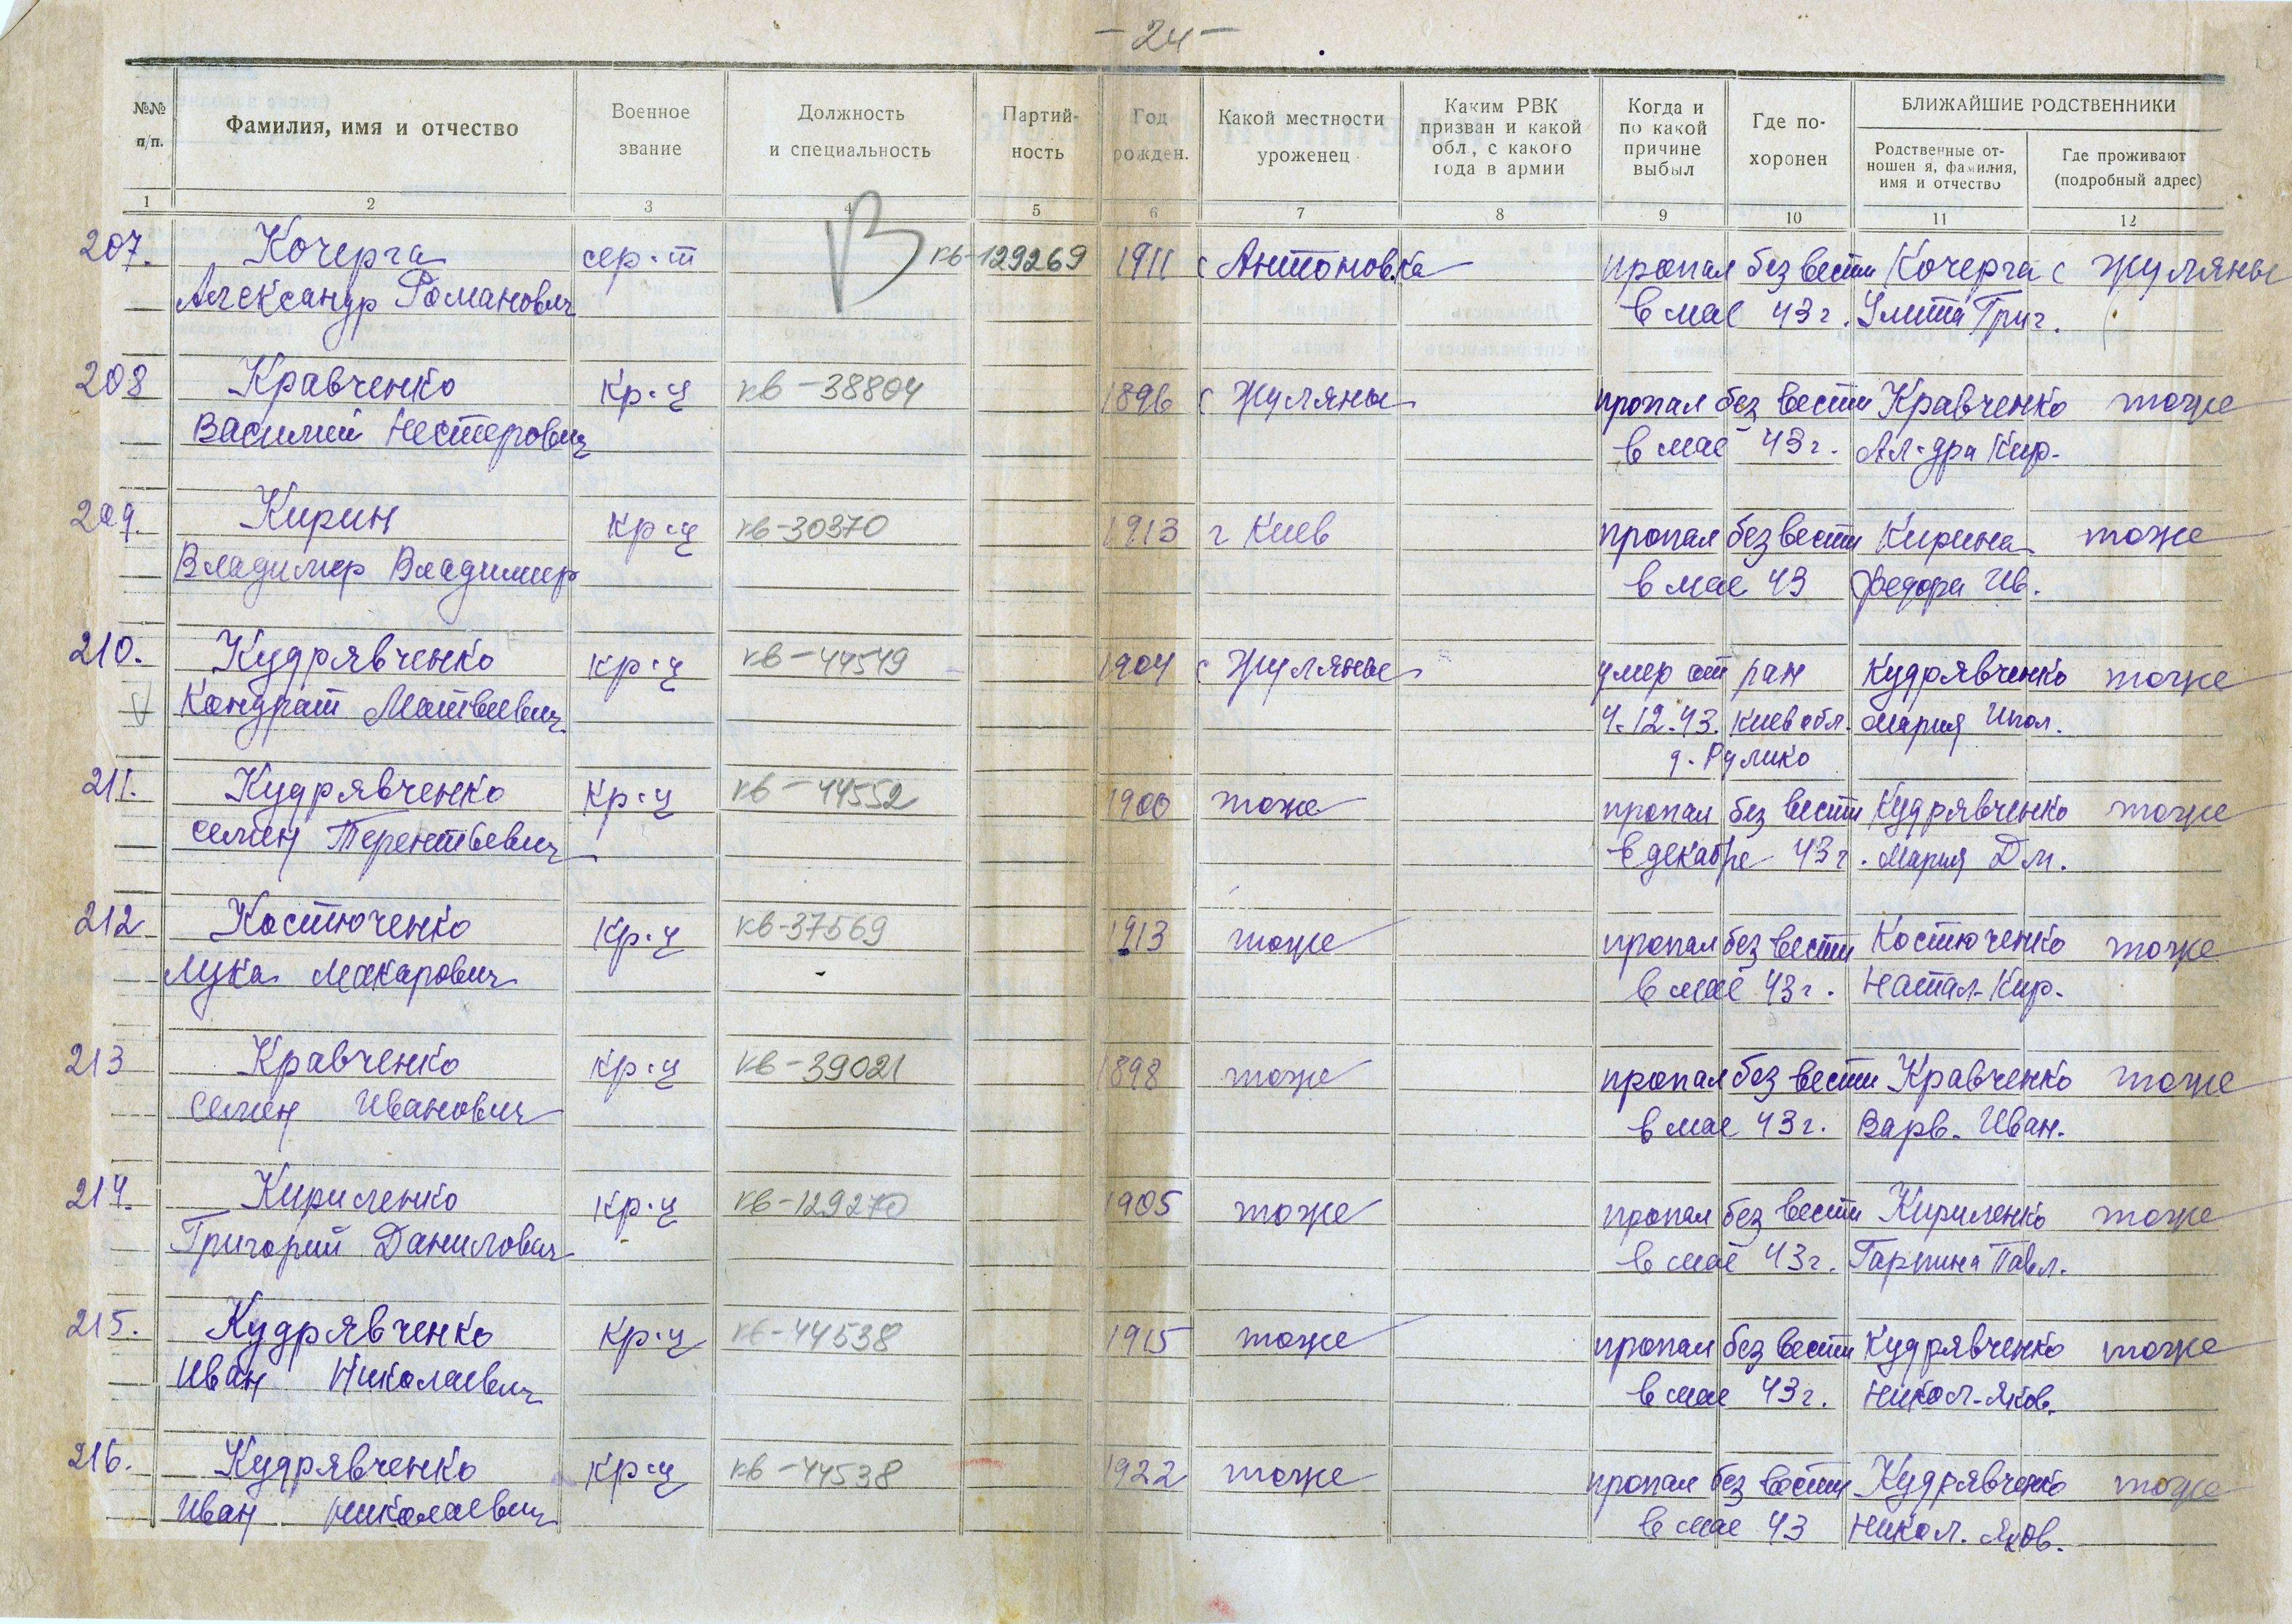 - 24 -
№№ п/п.
Фамилия, имя и отчество
Военное звание
Должность и специальность
Партий- ность
Год рожден.
Какой местности уроженец
Каким РВК призван и какой обл, с какого года в армии
Когда и по какой причине выбыл
Где по- хоронен
БЛИЖАЙШИЕ РОДСТВЕННИКИ
Родственные от- ношен я, фамилия, имя и отчество
Где проживают (подробный адрес)
1 2 3 4 5 6 7 8 9 10 11 12
207. Кочерга сер-т В кв-129269 1911 с Антоновка пропал без вести Кочерга с Жуляны
Александр Романович в мае 43 г. Улита Григ.
208 Кравченко кр-ц кв-38804 1896 с Жуляны пропал без вести Кравченко тоже
Василий Нестерович в мае 43 г. Ал-дра Кир.
209. Кирин кр-ц кв-30370 1913 г Киев пропал без вести Кирина тоже
Владимир Владимир в мае 43 Федора Ив.
210. Кудрявченко кр-ц кв-44549 1904 с Жуляны умер от ран Кудрявченко тоже
Кондрат Матвеевич 4.12.43. Киев обл. Мария Ипол.
д. Рулико
211. Кудрявченко кр-ц кв-44552 1900 тоже пропал без вести Кудрявченко тоже
Семен Терентьевич в декабре 43 г. Мария Дм.
212 Костюченко кр-ц кв-37569 1913 тоже пропал без вести Костюченко тоже
Лука Макарович в мае 43 г. Натал. Кир.
213 Кравченко кр-ц кв-39021 1898 тоже пропал без вести Кравченко тоже
Семен Иванович в мае 43 г. Варв. Иван.
214. Кириленко кр-ц кв-129270 1905 тоже пропал без вести Кириленко тоже
Григорий Данилович в мае 43 г. Гарпина Павл.
215. Кудрявченко кр-ц кв-44538 1915 тоже пропал без вести Кудрявченко тоже
Иван Николаевич в мае 43 г. Никол. Яков.
216. Кудрявченко кр-ц кв-44538 1922 тоже пропал без вести Кудрявченко тоже
Иван Николаевич в мае 43 Никол. Яков.